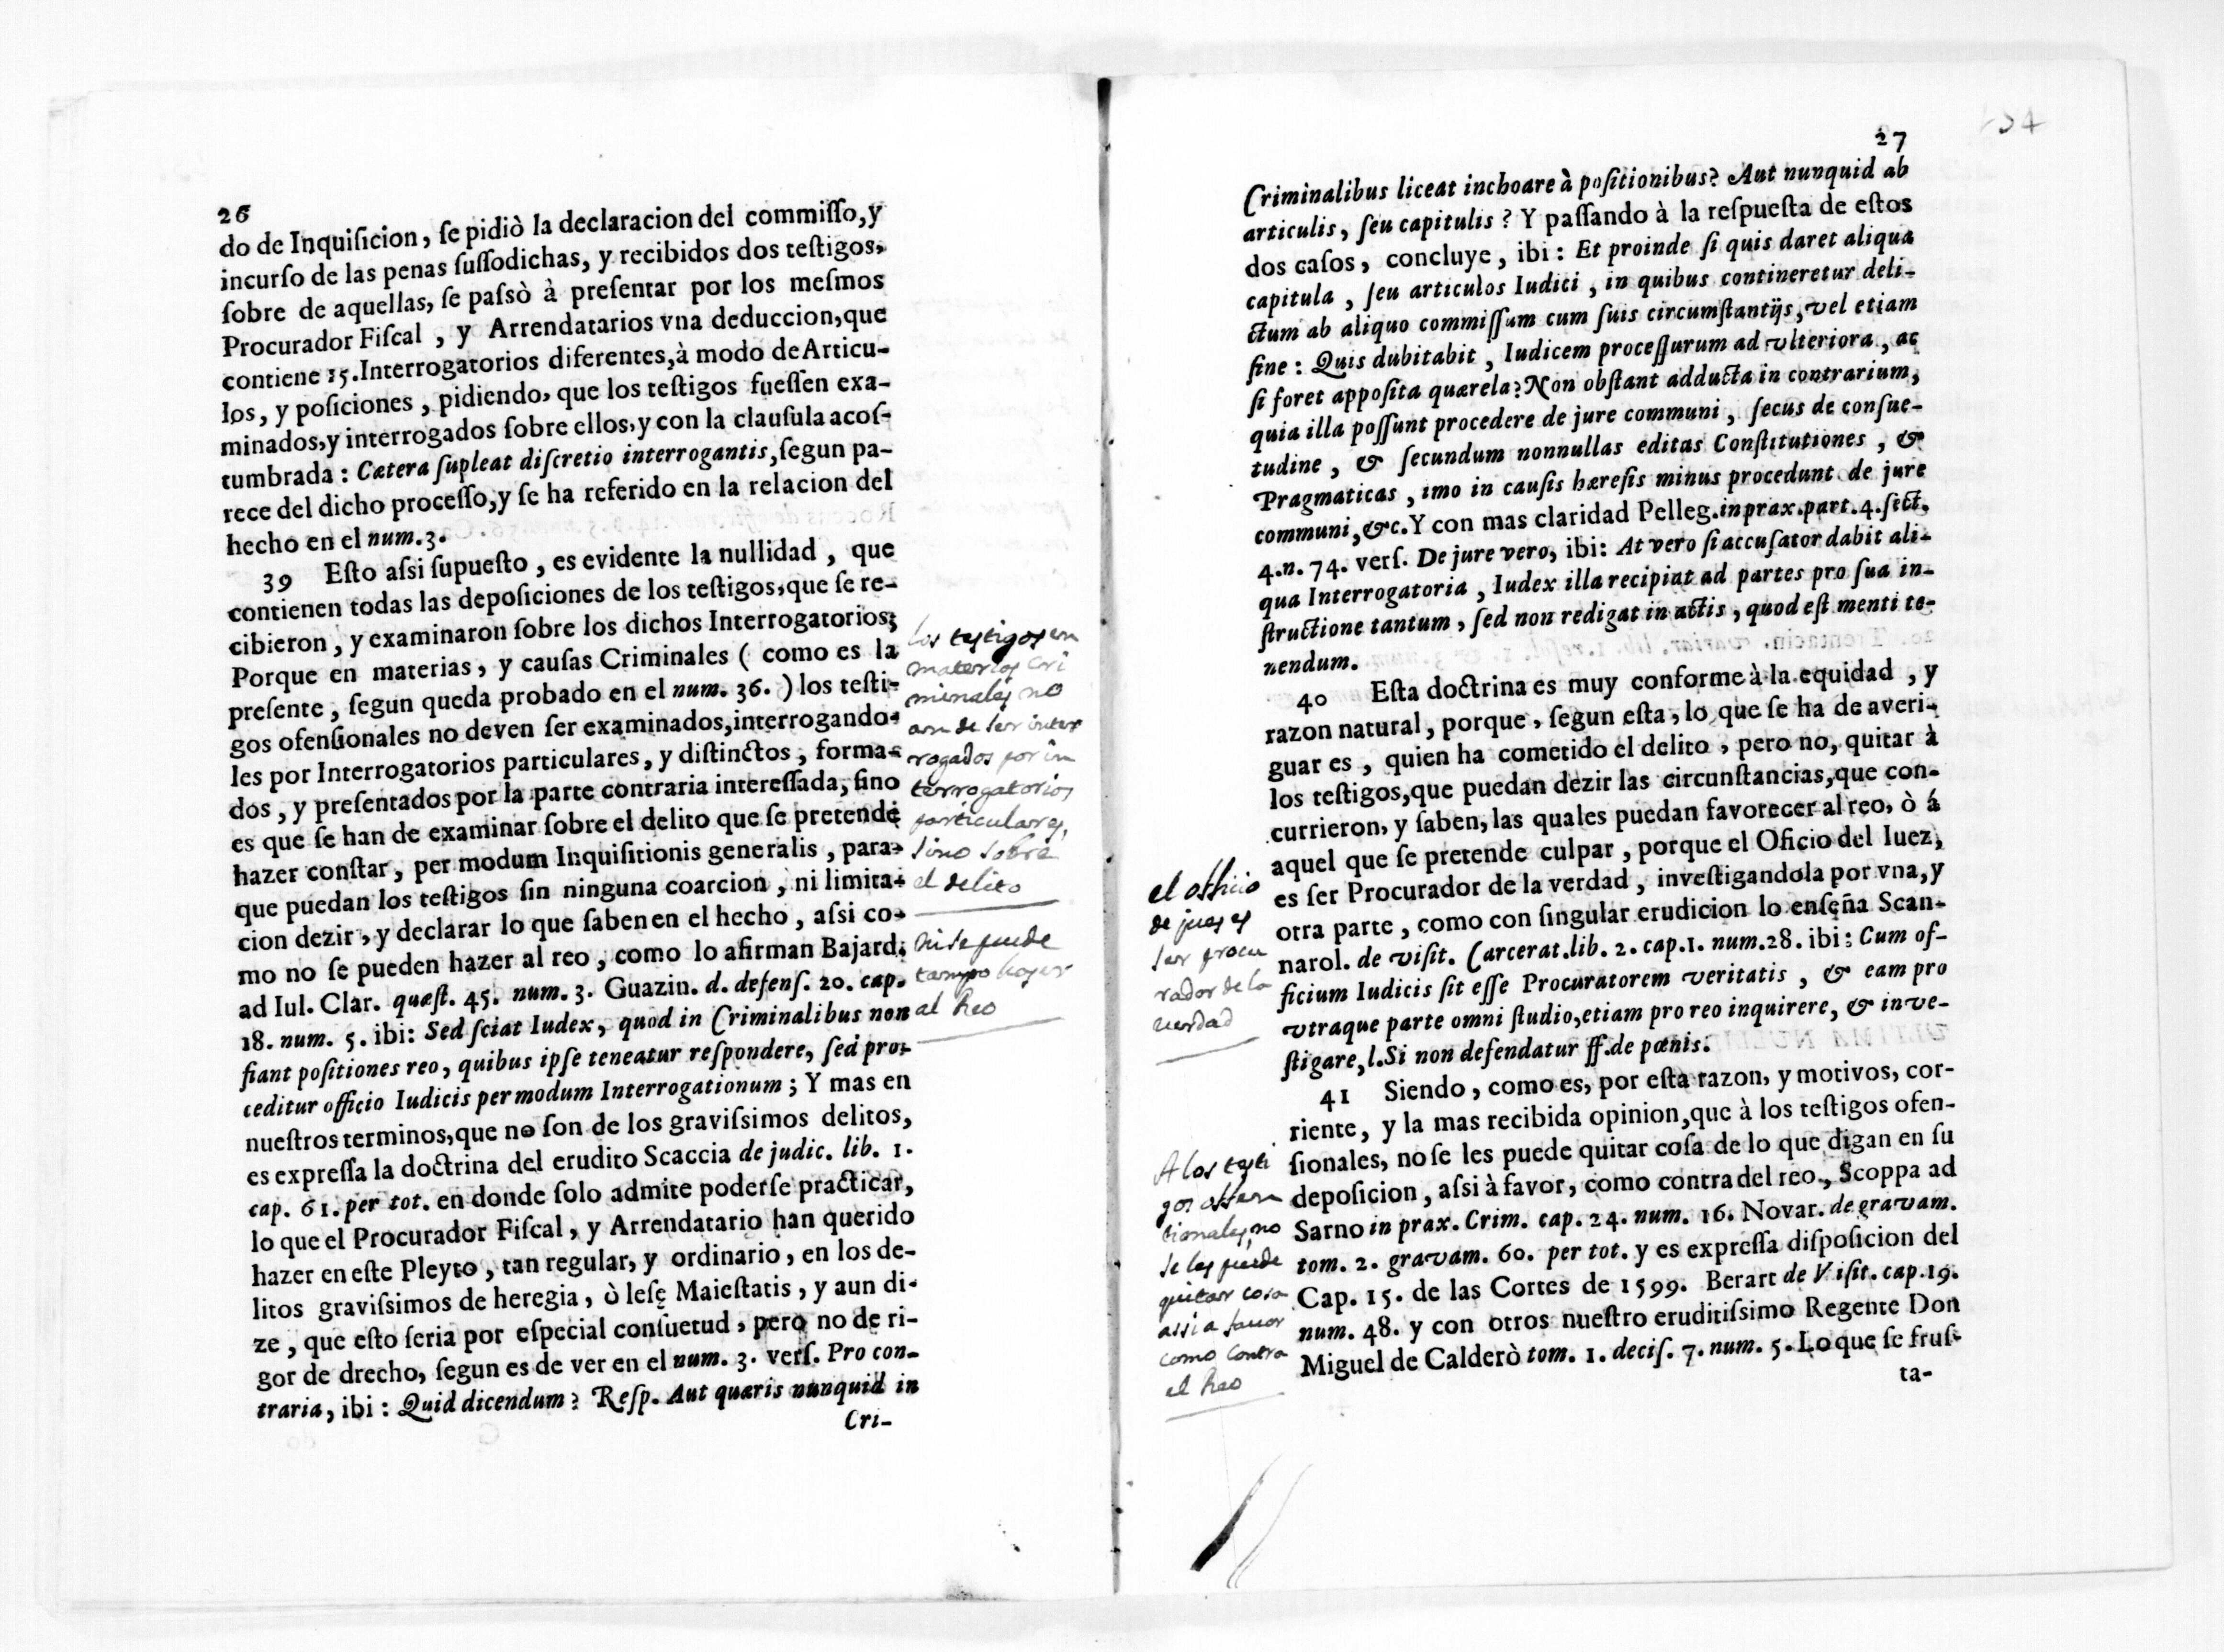 26
do de Inquisicion, ſe pidiò la declaracion del commiſſo,y
incurſo de las penas ſuſſodichas, y recibidos dos teſtigos,
ſobre de aquellas, ſe paſsò à preſentar por los meſmos
Procurador Fiſcal , y Arrendatarios vna deduccion,que
contiene 15.Interrogatorios diferentes,à modo de Articu-
los, y poſiciones , pidiendo, que los teſtigos fueſſen exa-
minados,y interrogados ſobre ellos,y con la clauſula acoſ-
tumbrada : Cætera ſupleat diſcretio interrogantis,ſegun pa-
rece del dicho proceſſo,y ſe ha referido en la relacion del
hecho en el num.3.
39 Eſto aſsi ſupueſto , es evidente la nullidad , que
contienen todas las depoſiciones de los teſtigos,que ſe re-
cibieron , y examinaron ſobre los dichos Interrogatorios;
Porque en materias, y cauſas Criminales ( como es la
preſente , ſegun queda probado en el num. 36. ) los teſti-
gos ofenſionales no deven ſer examinados,interrogando-
les por Interrogatorios particulares, y diſtinctos, forma-
dos , y preſentados por la parte contraria intereſſada, ſino
es que ſe han de examinar ſobre el delito que ſe pretende
hazer conſtar, per modum Inquiſitionis generalis , para-
que puedan los teſtigos ſin ninguna coarcion , ni limita-
cion dezir, y declarar lo que ſaben en el hecho , aſsi co-
mo no ſe pueden hazer al reo , como lo afirman Bajard.
ad Iul. Clar. quæſt. 45. num. 3. Guazin. d. defenſ. 20. cap.
18. num. 5. ibi: Sed ſciat Iudex, quod in Criminalibus non
fiant poſitiones reo, quibus ipſe teneatur reſpondere, ſed pro-
ceditur officio Iudicis per modum Interrogationum ; Y mas en
nueſtros terminos,que no ſon de los graviſsimos delitos,
es expreſſa la doctrina del erudito Scaccia de judic. lib. 1.
cap. 61. per tot. en donde ſolo admite poderſe practicar,
lo que el Procurador Fiſcal, y Arrendatario han querido
hazer en eſte Pleyto , tan regular, y ordinario, en los de-
litos graviſsimos de heregia, ò leſę Maieſtatis , y aun di-
ze , que eſto ſeria por eſpecial conſuetud , pero no de ri-
gor de drecho, ſegun es de ver en el num. 3. verſ. Pro con-
traria, ibi : Quid dicendum ? Reſp. Aut quæris nunquid in
Cri-
los testigos en
materias cri
minales no
an de ser inter
rogados por in
terrogatorios
particulares,
sino sobre
el delito
ni se puede
tampo hazer
al Reo
27
Criminalibus liceat inchoare à poſitionibus? Aut nunquid ab
articulis, ſeu capitulis ? Y paſſando à la reſpueſta de eſtos
dos caſos, concluye, ibi : Et proinde ſi quis daret aliqua
capitula , ſeu articulos Iudici , in quibus contineretur deli-
ctum ab aliquo commiſſum cum ſuis circumſtantijs, vel etiam
ſine : Quis dubitabit , Iudicem proceſſurum ad vlteriora, ac
ſi foret appoſita quærela? Non obſtant adducta in contrarium,
quia illa poſſunt procedere de jure communi , ſecus de conſue-
tudine , & ſecundum nonnullas editas Conſtitutiones , &
Pragmaticas , imo in cauſis hæreſis minus procedunt de jure
communi, &c. Y con mas claridad Pelleg. in prax. part. 4. ſect.
4.n. 74. verſ. De jure vero, ibi: At vero ſi accuſator dabit ali-
qua Interrogatoria , Iudex illa recipiat ad partes pro ſua in-
ſtructione tantum , ſed non redigat in actis , quod eſt menti te-
nendum.
40 Eſta doctrina es muy conforme à la equidad , y
razon natural, porque, ſegun eſta, lo que ſe ha de averi-
guar es , quien ha cometido el delito , pero no, quitar à
los teſtigos,que puedan dezir las circunſtancias,que con-
currieron, y ſaben, las quales puedan favorecer al reo, ò á
aquel que ſe pretende culpar , porque el Oficio del Iuez,
es ſer Procurador de la verdad , inveſtigandola por vna, y
otra parte , como con ſingular erudicion lo enſeña Scan-
narol. de viſit. Carcerat. lib. 2. cap.1. num.28. ibi: Cum of-
ficium Iudicis ſit eſſe Procuratorem veritatis , & eam pro
vtraque parte omni ſtudio,etiam pro reo inquirere, & inve-
ſtigare, l. Si non defendatur ff. de pœnis.
41 Siendo, como es, por eſta razon, y motivos, cor-
riente, y la mas recibida opinion,que à los teſtigos ofen-
ſionales, no ſe les puede quitar coſa de lo que digan en ſu
depoſicion, aſsi à favor, como contra del reo, Scoppa ad
Sarno in prax. Crim. cap. 24. num. 16. Novar. de gravam.
tom. 2. gravam. 60. per tot. y es expreſſa diſpoſicion del
Cap. 15. de las Cortes de 1599. Berart de Viſit. cap.19.
num. 48. y con otros nueſtro eruditiſsimo Regente Don
Miguel de Calderò tom. 1. deciſ. 7. num. 5. Lo que ſe fruſ-
ta-
el officio
de juez es
ser procu
rador de la
verdad
A los testi
gos offen
tionales no
se les puede
quitar cosa
assi a favor
como contra
el Reo